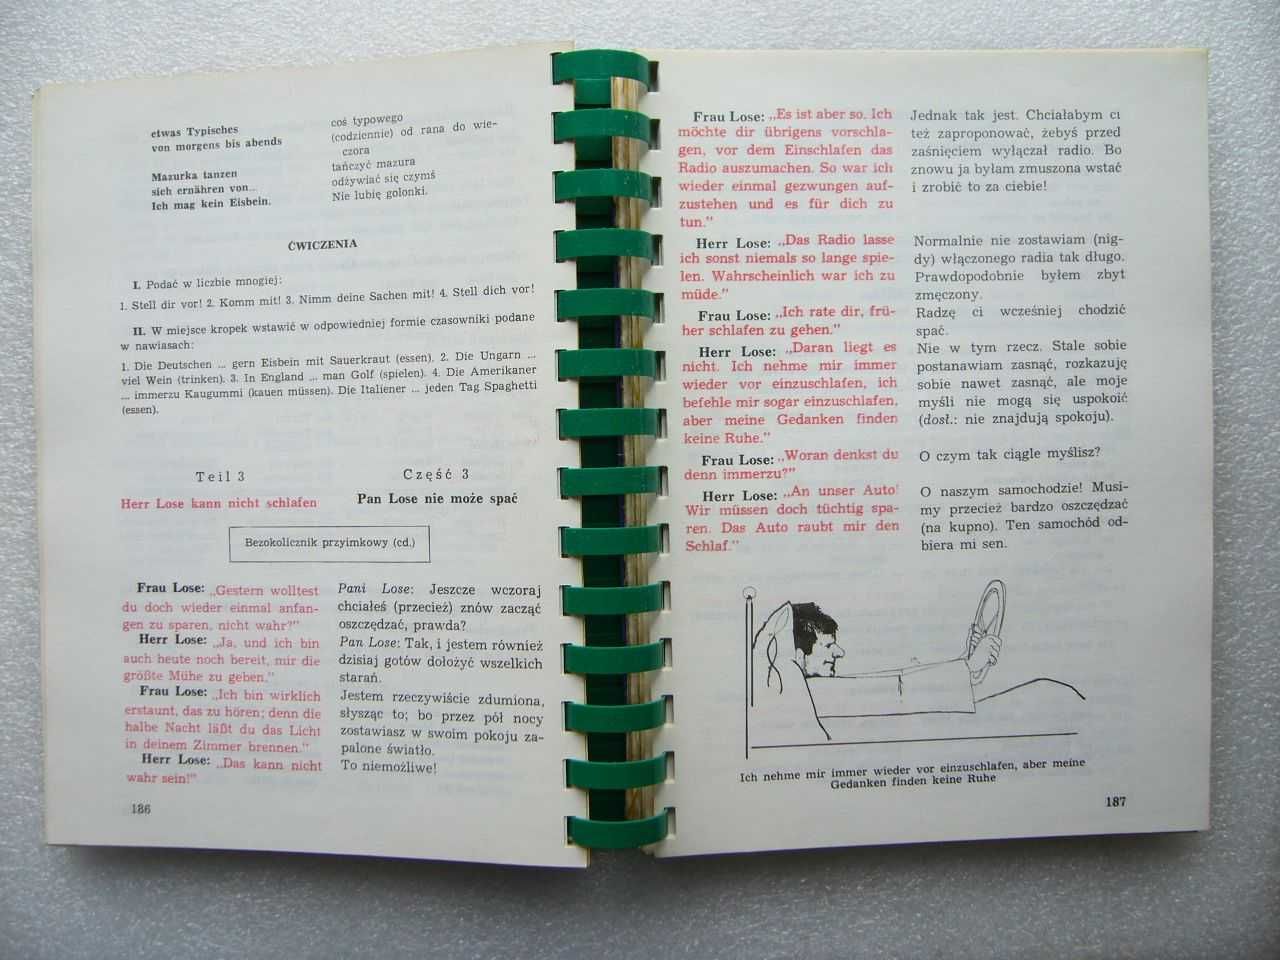 etwas Typisches
von morgens bis abends
Mazurka tanzen
sich ernähren von...
Ich mag kein Eisbein.
coś typowego
(codziennie) od rana do wie-
czora
tańczyć mazura
odżywiać się czymś
Nie lubię golonki.
ĆWICZENIA
I. Podać w liczbie mnogiej:
1. Stell dir vor! 2. Komm mit! 3. Nimm deine Sachen mit! 4. Stell dich vor!
II. W miejsce kropek wstawić w odpowiedniej formie czasowniki podane
w nawiasach:
1. Die Deutschen ... gern Eisbein mit Sauerkraut (essen). 2. Die Ungarn ...
viel Wein (trinken). 3. In England ... man Golf (spielen). 4. Die Amerikaner
... immerzu Kaugummi (kauen müssen). Die Italiener ... jeden Tag Spaghetti
(essen).
Teil 3
Herr Lose kann nicht schlafen
Część 3
Pan Lose nie może spać
Bezokolicznik przyimkowy (cd.)
Frau Lose: „Gestern wolltest
du doch wieder einmal anfan-
gen zu sparen, nicht wahr?"
Herr Lose: „Ja, und ich bin
auch heute noch bereit, mir die
größte Mühe zu geben."
Frau Lose: „Ich bin wirklich
erstaunt, das zu hören; denn die
halbe Nacht läßt du das Licht
in deinem Zimmer brennen."
Herr Lose: „Das kann nicht
wahr sein!"
Pani Lose: Jeszcze wczoraj
chciałeś (przecież) znów zacząć
oszczędzać, prawda?
Pan Lose: Tak, i jestem również
dzisiaj gotów dołożyć wszelkich
starań.
Jestem rzeczywiście zdumiona,
słysząc to; bo przez pół nocy
zostawiasz w swoim pokoju za-
palone światło.
To niemożliwe!
186
Frau Lose: „Es ist aber so. Ich
möchte dir übrigens vorschla-
gen, vor dem Einschlafen das
Radio auszumachen. So war ich
wieder einmal gezwungen auf-
zustehen und es für dich zu
tun."
Herr Lose: „Das Radio lasse
ich sonst niemals so lange spie-
len. Wahrscheinlich war ich zu
müde."
Frau Lose: „Ich rate dir, frü-
her schlafen zu gehen."
Herr Lose: „Daran liegt es
nicht. Ich nehme mir immer
wieder vor einzuschlafen, ich
befehle mir sogar einzuschlafen,
aber meine Gedanken finden
keine Ruhe."
Frau Lose: „Woran denkst du
denn immerzu?"
Herr Lose: „An unser Auto!
Wir müssen doch tüchtig spa-
ren. Das Auto raubt mir den
Schlaf."
Jednak tak jest. Chciałabym ci
też zaproponować, żebyś przed
zaśnięciem wyłączał radio. Bo
znowu ja byłam zmuszona wstać
i zrobić to za ciebie!
Normalnie nie zostawiam (nig-
dy) włączonego radia tak długo.
Prawdopodobnie byłem zbyt
zmęczony.
Radzę ci wcześniej chodzić
spać.
Nie w tym rzecz. Stale sobie
postanawiam zasnąć, rozkazuję
sobie nawet zasnąć, ale moje
myśli nie mogą się uspokoić
(dosł.: nie znajdują spokoju).
O czym tak ciągle myślisz?
O naszym samochodzie! Musi-
my przecież bardzo oszczędzać
(na kupno). Ten samochód od-
biera mi sen.
Ich nehme mir immer wieder vor einzuschlafen, aber meine
Gedanken finden keine Ruhe
187